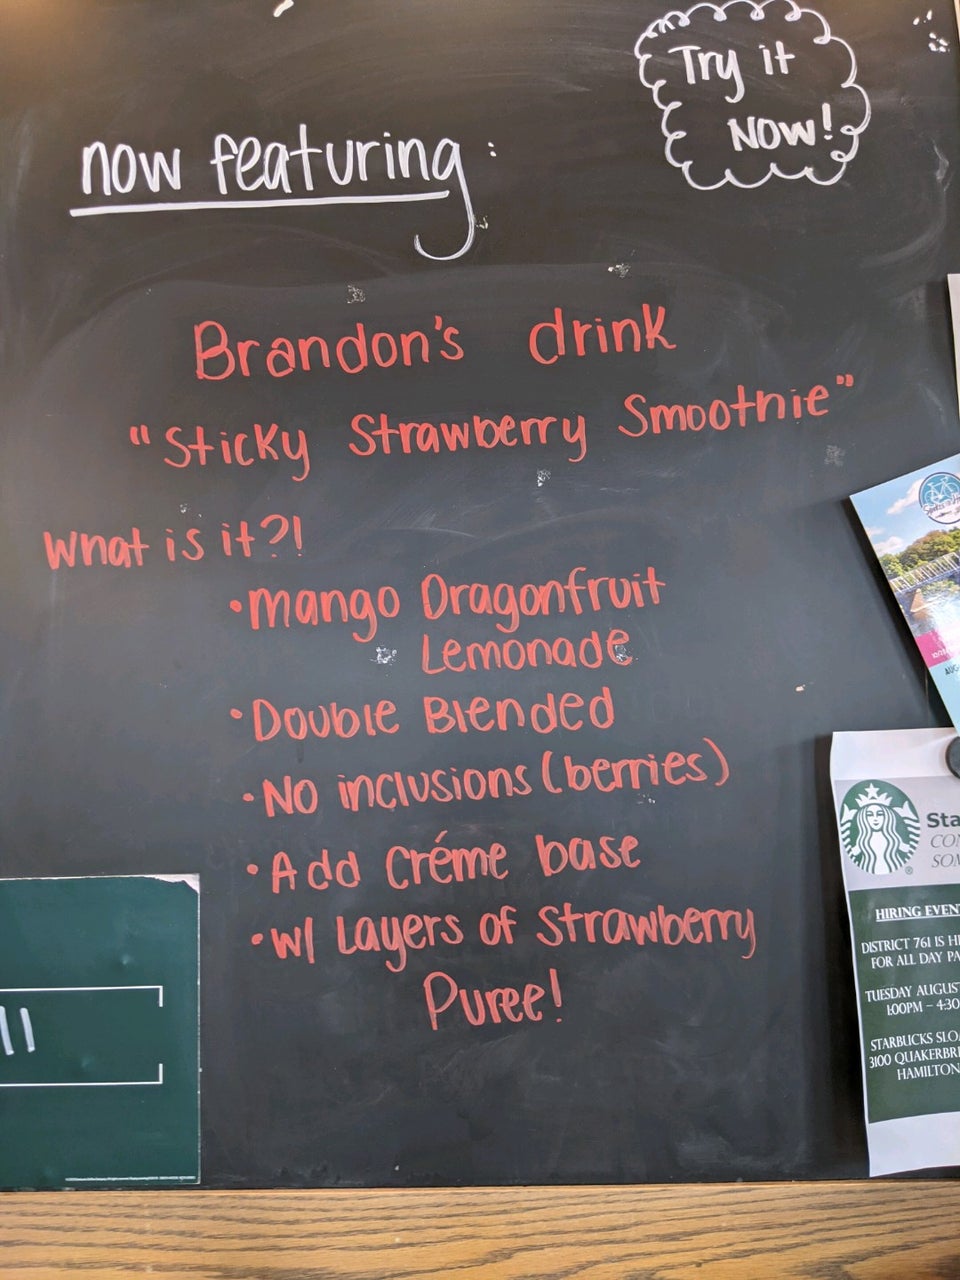 Try it
Now!
now featuring:
Brandon's drink
"Sticky Strawberry Smoothie"
What is it?!
• Mango Dragonfruit
Lemonade
• Double Blended
• No inclusions (berries)
• Add Créme base
• w/ Layers of Strawberry
Puree!
AUG
Sta
CO
SO
HIRING EVEN
DISTRICT 761 IS H
FOR ALL DAY PA
TUESDAY AUGUS
1:00PM – 4:30
STARBUCKS SLO
3100 QUAKERBR
HAMILTON